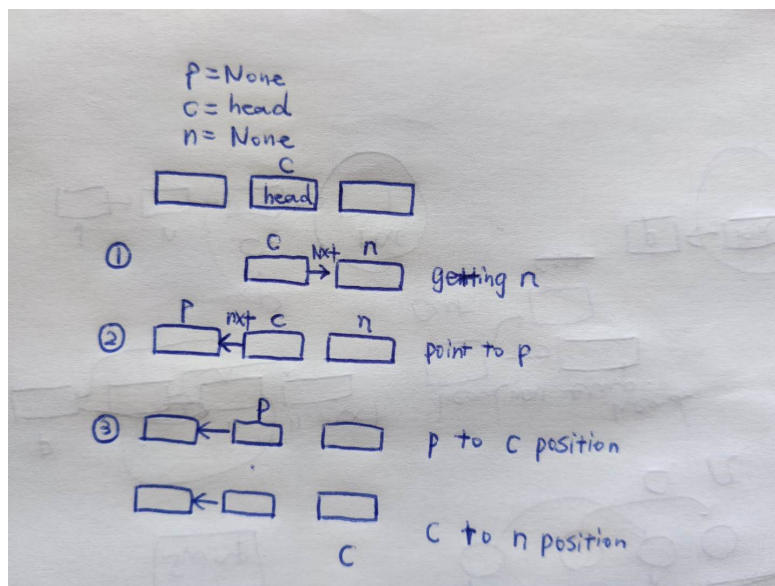 p = None
c = head
n = None
C
head
① C Nxt n getting n
② P nxt C n point to p
③ P p to c position
C C to n position